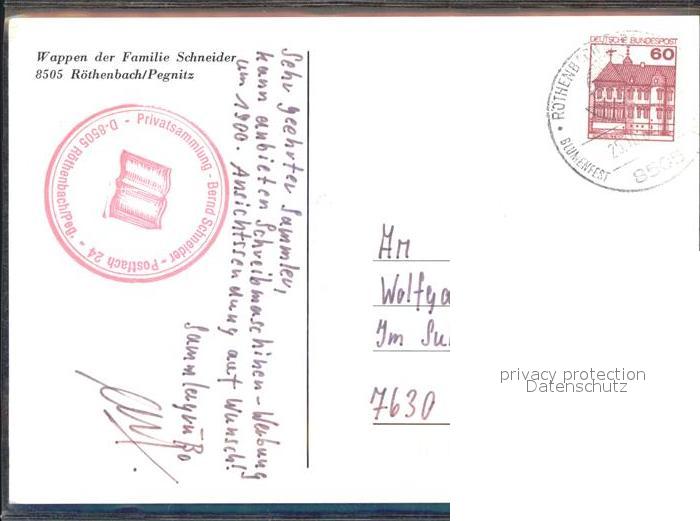 Wappen der Familie Schneider
8505 Röthenbach/Pegnitz
Privatsammlung - Bernd Schneider - Postfach 24 - D-8505 Röthenbach/Peg.
Sehr geehrter Sammler,
kann anbieten Schreibmaschinen-Werbung
um 1900. Ansichtssendung auf Wunsch!
Sammlergrüße
DEUTSCHE BUNDESPOST
60
RÖTHENB
BLUMENFEST
8505
An
Wolfga
Im Su
7630
privacy protection
Datenschutz